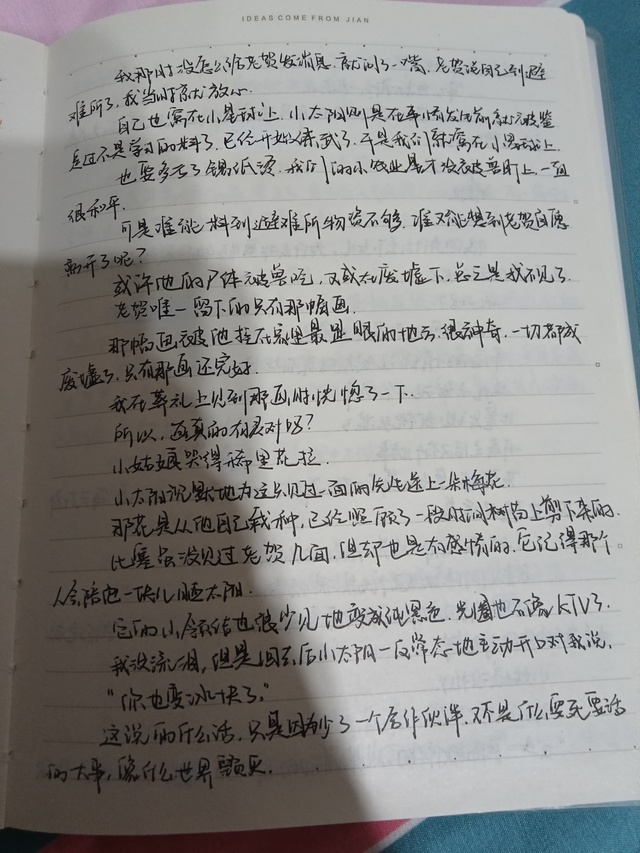 IDEAS COME FROM JIAN
我那时没怎么给老贺发消息，就问了一嘴，老贺说自己到避
难所了，我当时尤放心。
自己也窝在小星球上，小太阳则是在事情发生前就被鉴
定过不是学习的料了，已经开始练武了，于是我们就窝在小星球上。
也要多亏了锡纸烫，我们的小作业是才没被兽盯上，一直
很和平。
可是谁能料到避难所物资不够，谁又能想到老贺自愿
离开了呢？
或许他的尸体被兽吃，又或在废墟下，总之是找不见了。
老贺唯一留下的只有那幅画。
那幅画被他挂在家里最显眼的地方，很神奇，一切都成
废墟了，只有那画还完好。
我在葬礼上见到那画时恍惚了一下。
所以，画真的有灵对吗？
小姑娘哭得稀里花拉。
小太阳沉默地为这只见过一面的先生送上一朵梅花。
那花是从他自己栽种，已经照顾了一段时间树苗上剪下来的。
比塞虽没见过老贺几面，但却也是有感情的，它记得那个
人会陪他一块儿晒太阳。
它的小领结也很少儿地变成纯黑色，光圈也不闪KTV了。
我没流泪，但是回去后小太阳一反常态地主动开口对我说，
“你也变冰块了。”
这说的什么话，只是因为少了一个合作伙伴，不是什么要死要活
的大事，像什么世界颠灭。